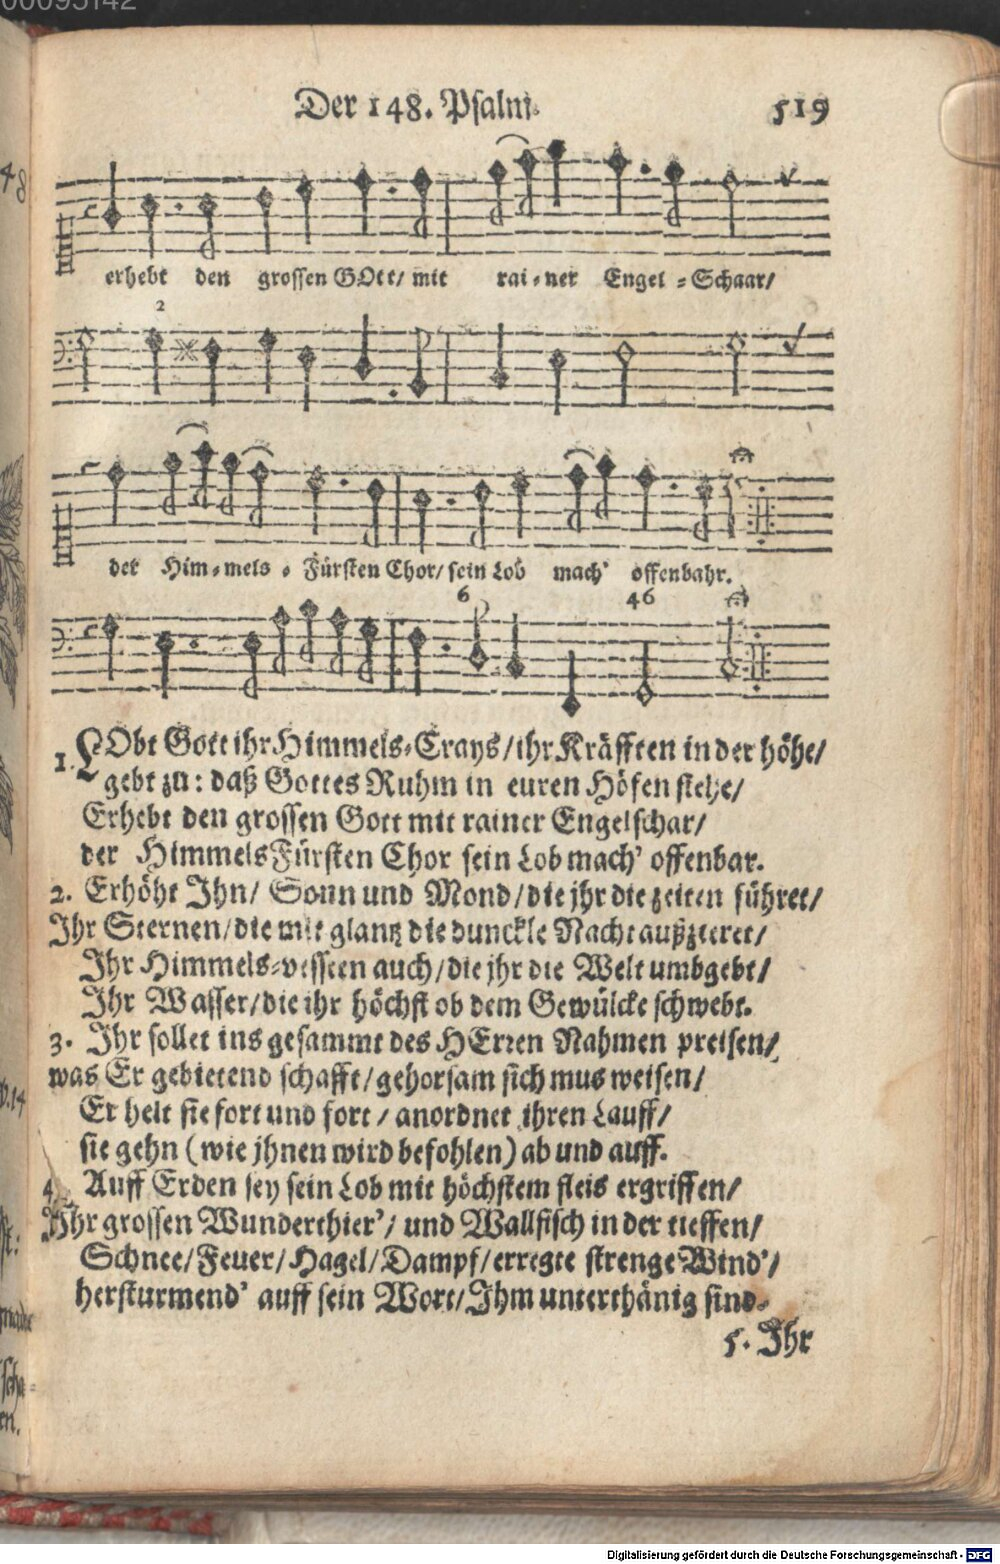 00095142
Der 148. Psalm. 519
erhebt den grossen GOtt/ mit rai-ner Engel-Schaar/
2
der Him-mels-Fürsten Chor/ sein Lob mach' offenbahr.
6 46
1. LObt Gott ihr Himmels-Crays/ ihr Kräfften in der höhe/
gebt zu: daß Gottes Ruhm in euren Höfen stehe/
Erhebt den grossen Gott mit rainer Engelschar/
der HimmelsFürsten Chor sein Lob mach' offenbar.
2. Erhöht Ihn/ Sonn und Mond/ die jhr die zeiten führet/
Ihr Sternen/ die mit glantz die dunckle Nacht außzieret/
Ihr Himmels-vessten auch/ die jhr die Welt umbgebt/
Ihr Wasser/ die ihr höchst ob dem Gewülcke schwebt.
3. Ihr sollet ins gesammt des HErren Nahmen preisen/
was Er gebietend schafft/ gehorsam sich mus weisen/
Er helt sie fort und fort/ anordnet ihren Lauff/
sie gehn (wie jhnen wird befohlen) ab und auff.
4. Auff Erden sey sein Lob mit höchstem fleis ergriffen/
Ihr grossen Wunderthier'/ und Wallfisch in der tieffen/
Schnee/ Feuer/ Hagel/ Dampf/ erregte strenge Wind'/
hersturmend' auff sein Wort/ Ihm unterthänig sind.
5. Ihr
Digitalisierung gefördert durch die Deutsche Forschungsgemeinschaft - DFG